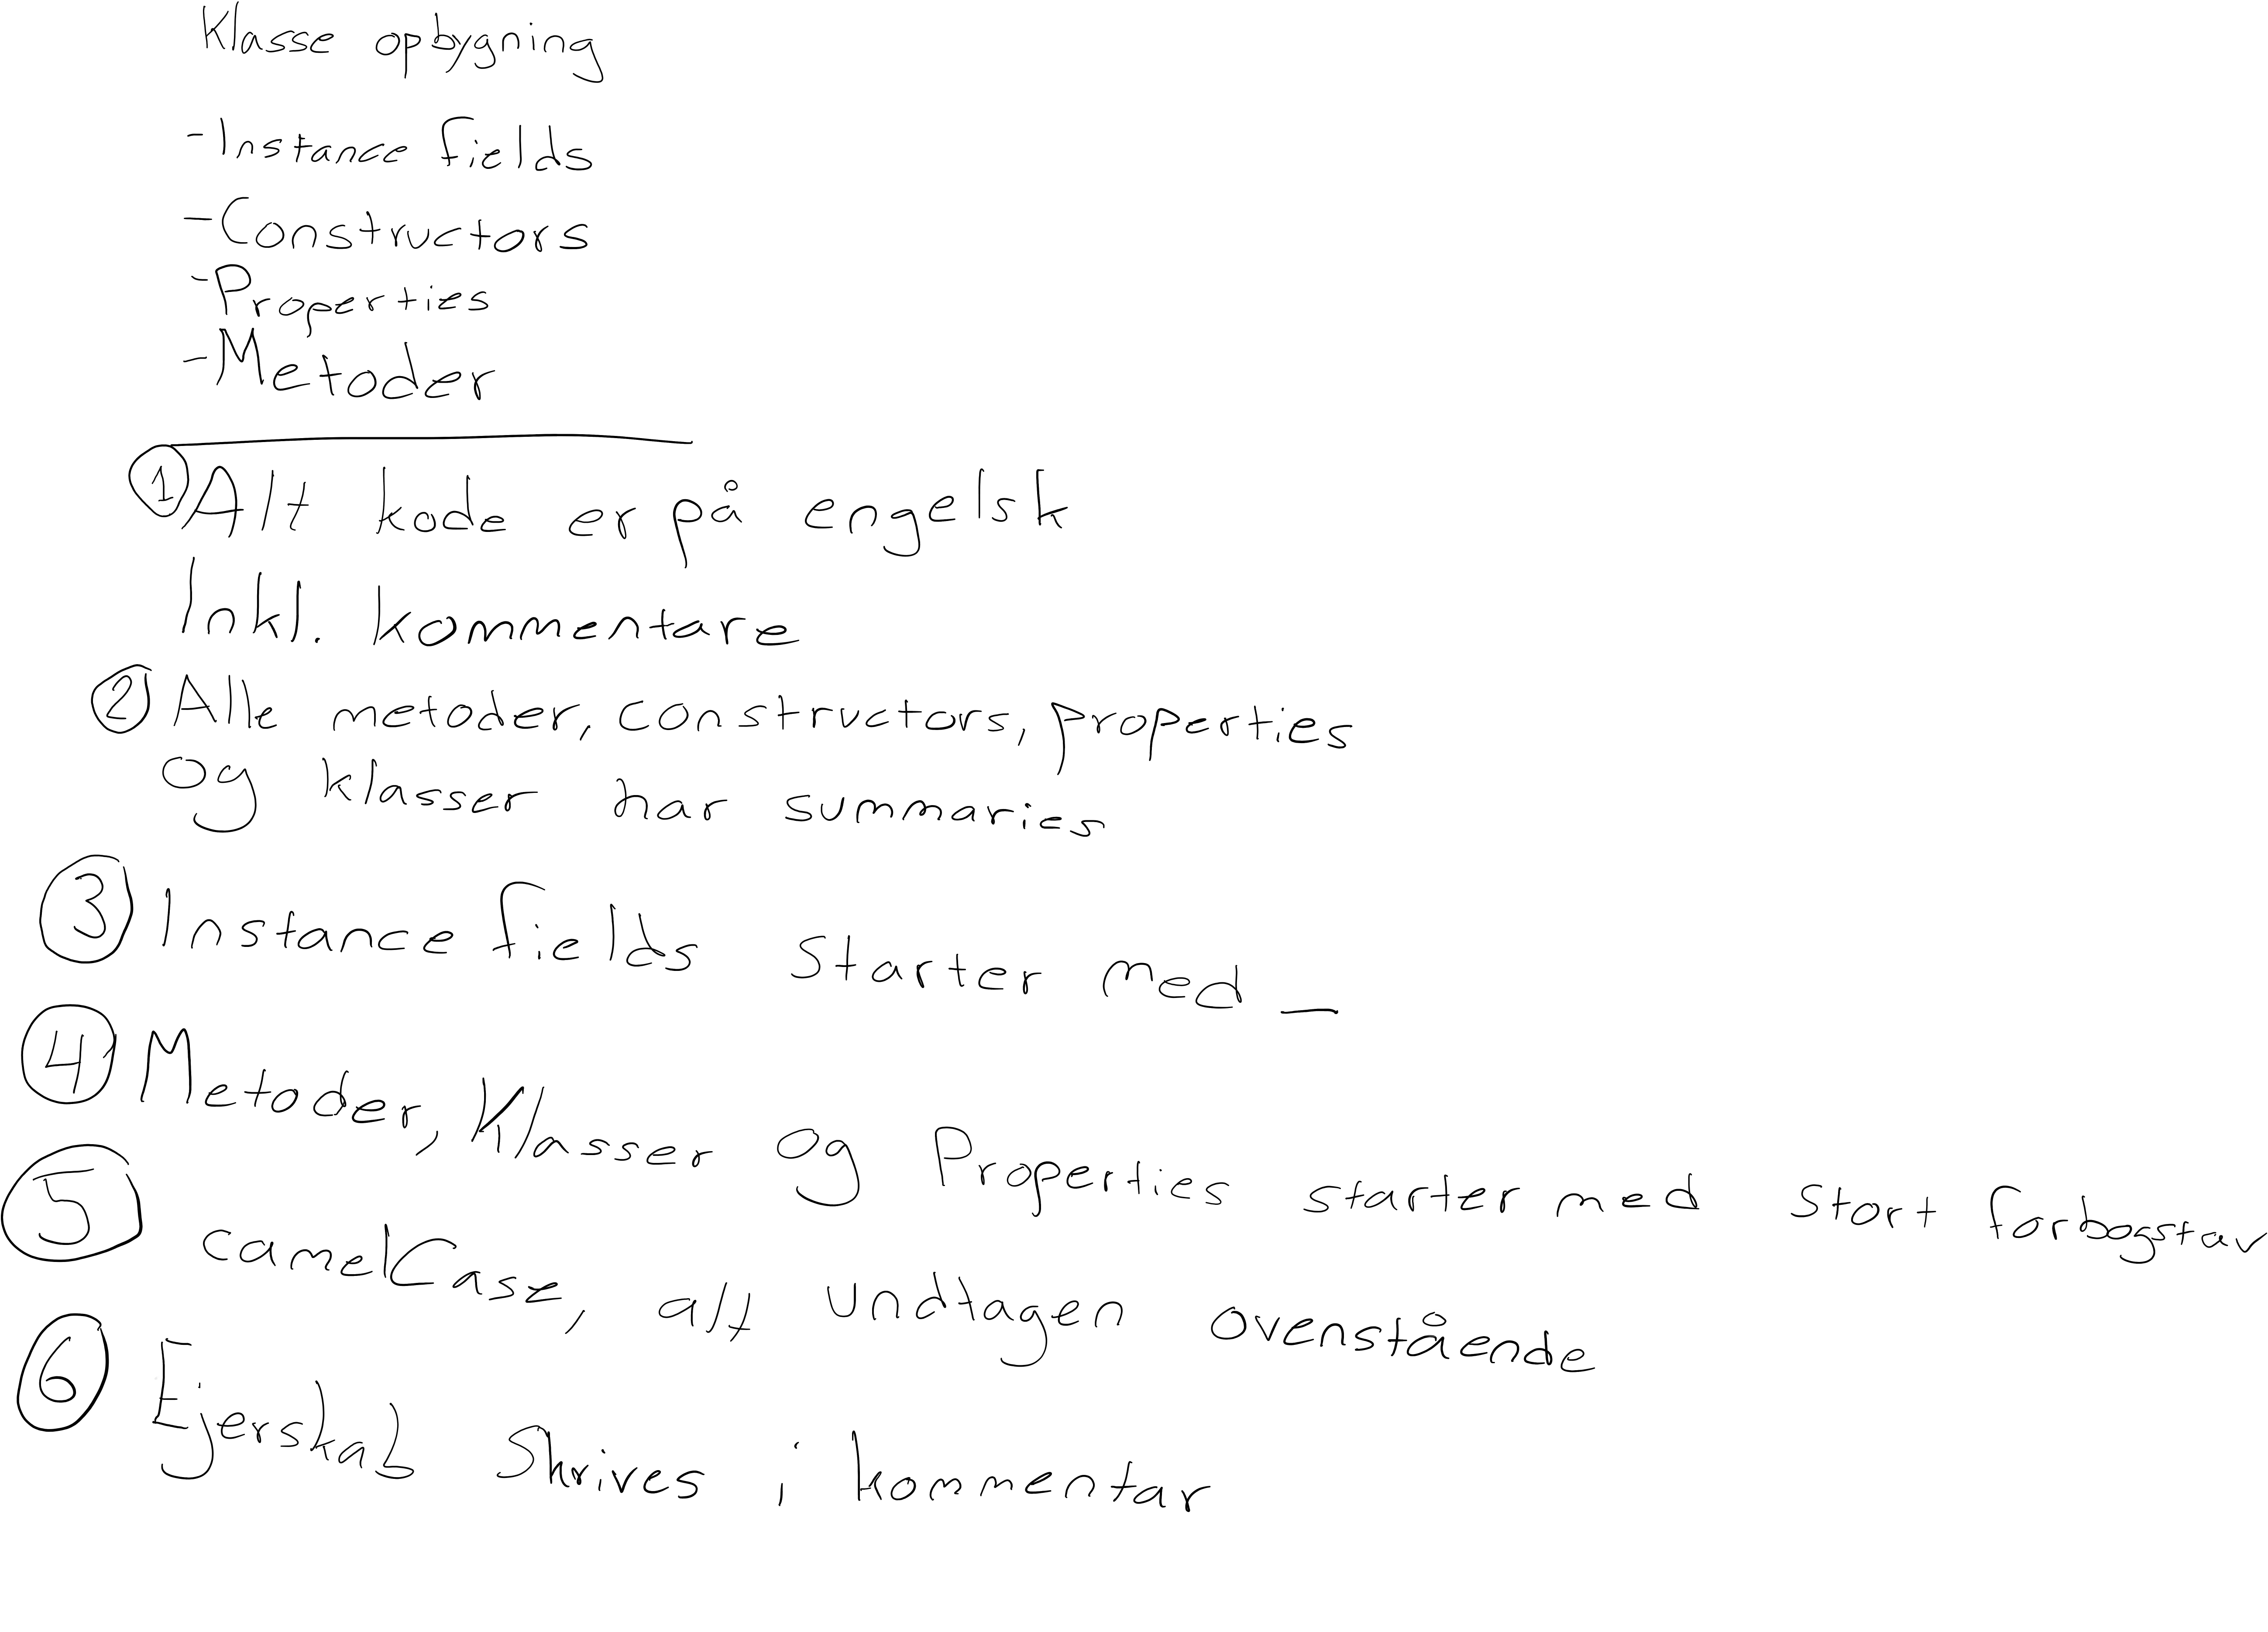 Klasse opbygning
- Instance fields
- Constructors
- Properties
- Metoder
1 Alt kode er på engelsk
Inkl. kommentare
2 Alle metoder, constructors, properties
og klasser har summaries
3 Instance fields starter med _
4 Metoder, Klasser og Properties starter med stort forbogstav
5 camelCase, alt undtagen ovenstående
6 Ejerskab Skrives i kommentar